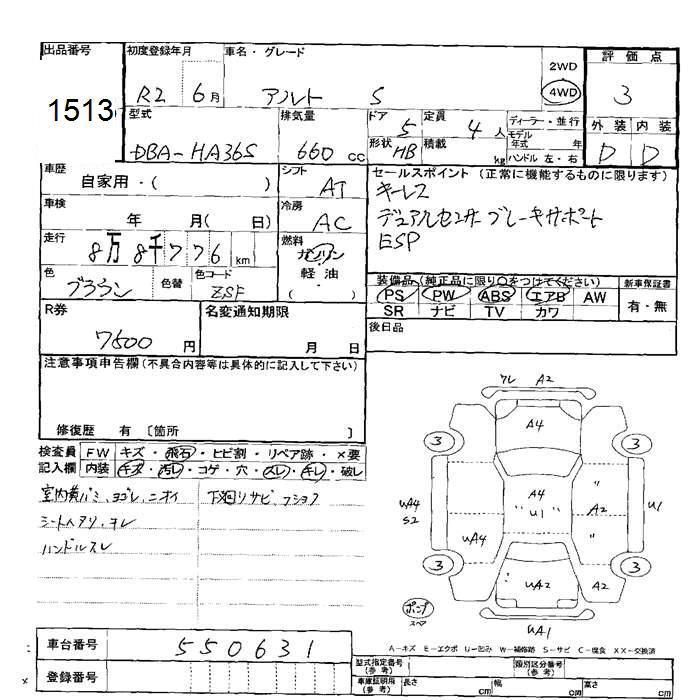 出品番号 初度登録年月 車名・グレード 2WD 評価点
1513 R2 6月 アルト S 4WD 3
型式 排気量 ドア 定員 ディーラー・並行 外装 内装
DBA-HA36S 660 cc 5 4人 モデル年式 年 D D
形状 HB 積載 kg ハンドル 左・右
車歴 シフト セールスポイント (正常に機能するものに限ります)
自家用・( ) AT キーレス
車検 冷房 デュアルセンサーブレーキサポート
年 月( 日) AC ESP
走行 燃料
8万 8千 776 km ガソリン・軽油 ( )
色 色替 色コード 装備品 (純正品に限り○をつけてください) 新車保証書
ブラウン ZSF PS PW ABS エアB AW 有・無
R券 名変通知期限 SR ナビ TV カワ
7600 円 月 日 後日品
注意事項申告欄(不具合内容等は具体的に記入して下さい)
修復歴 有 [箇所 ]
検査員 FW キズ・飛石・ヒビ割・リペア跡・×要
記入欄 内装 キズ・汚レ・コゲ・穴・スレ・キレ・破レ
ヨゴレ、ニオイ 下廻りサビ、フショク
シートヘタリ、ヨレ
ハンドルスレ
ワレ A2
A4
3 3
UA4 S2 A4 U1 " A2 U1
UA4 "
3 3
UA2 A2
ポンプ
スペア UA1
車台番号 550631
A-キズ E-エクボ U-凹み W-補修跡 S-サビ C-腐食 XX-交換済
登録番号 型式指定番号 (参考) 類別区分番号 (参考)
車庫証明用 (参考) 長さ cm 幅 cm 高さ cm